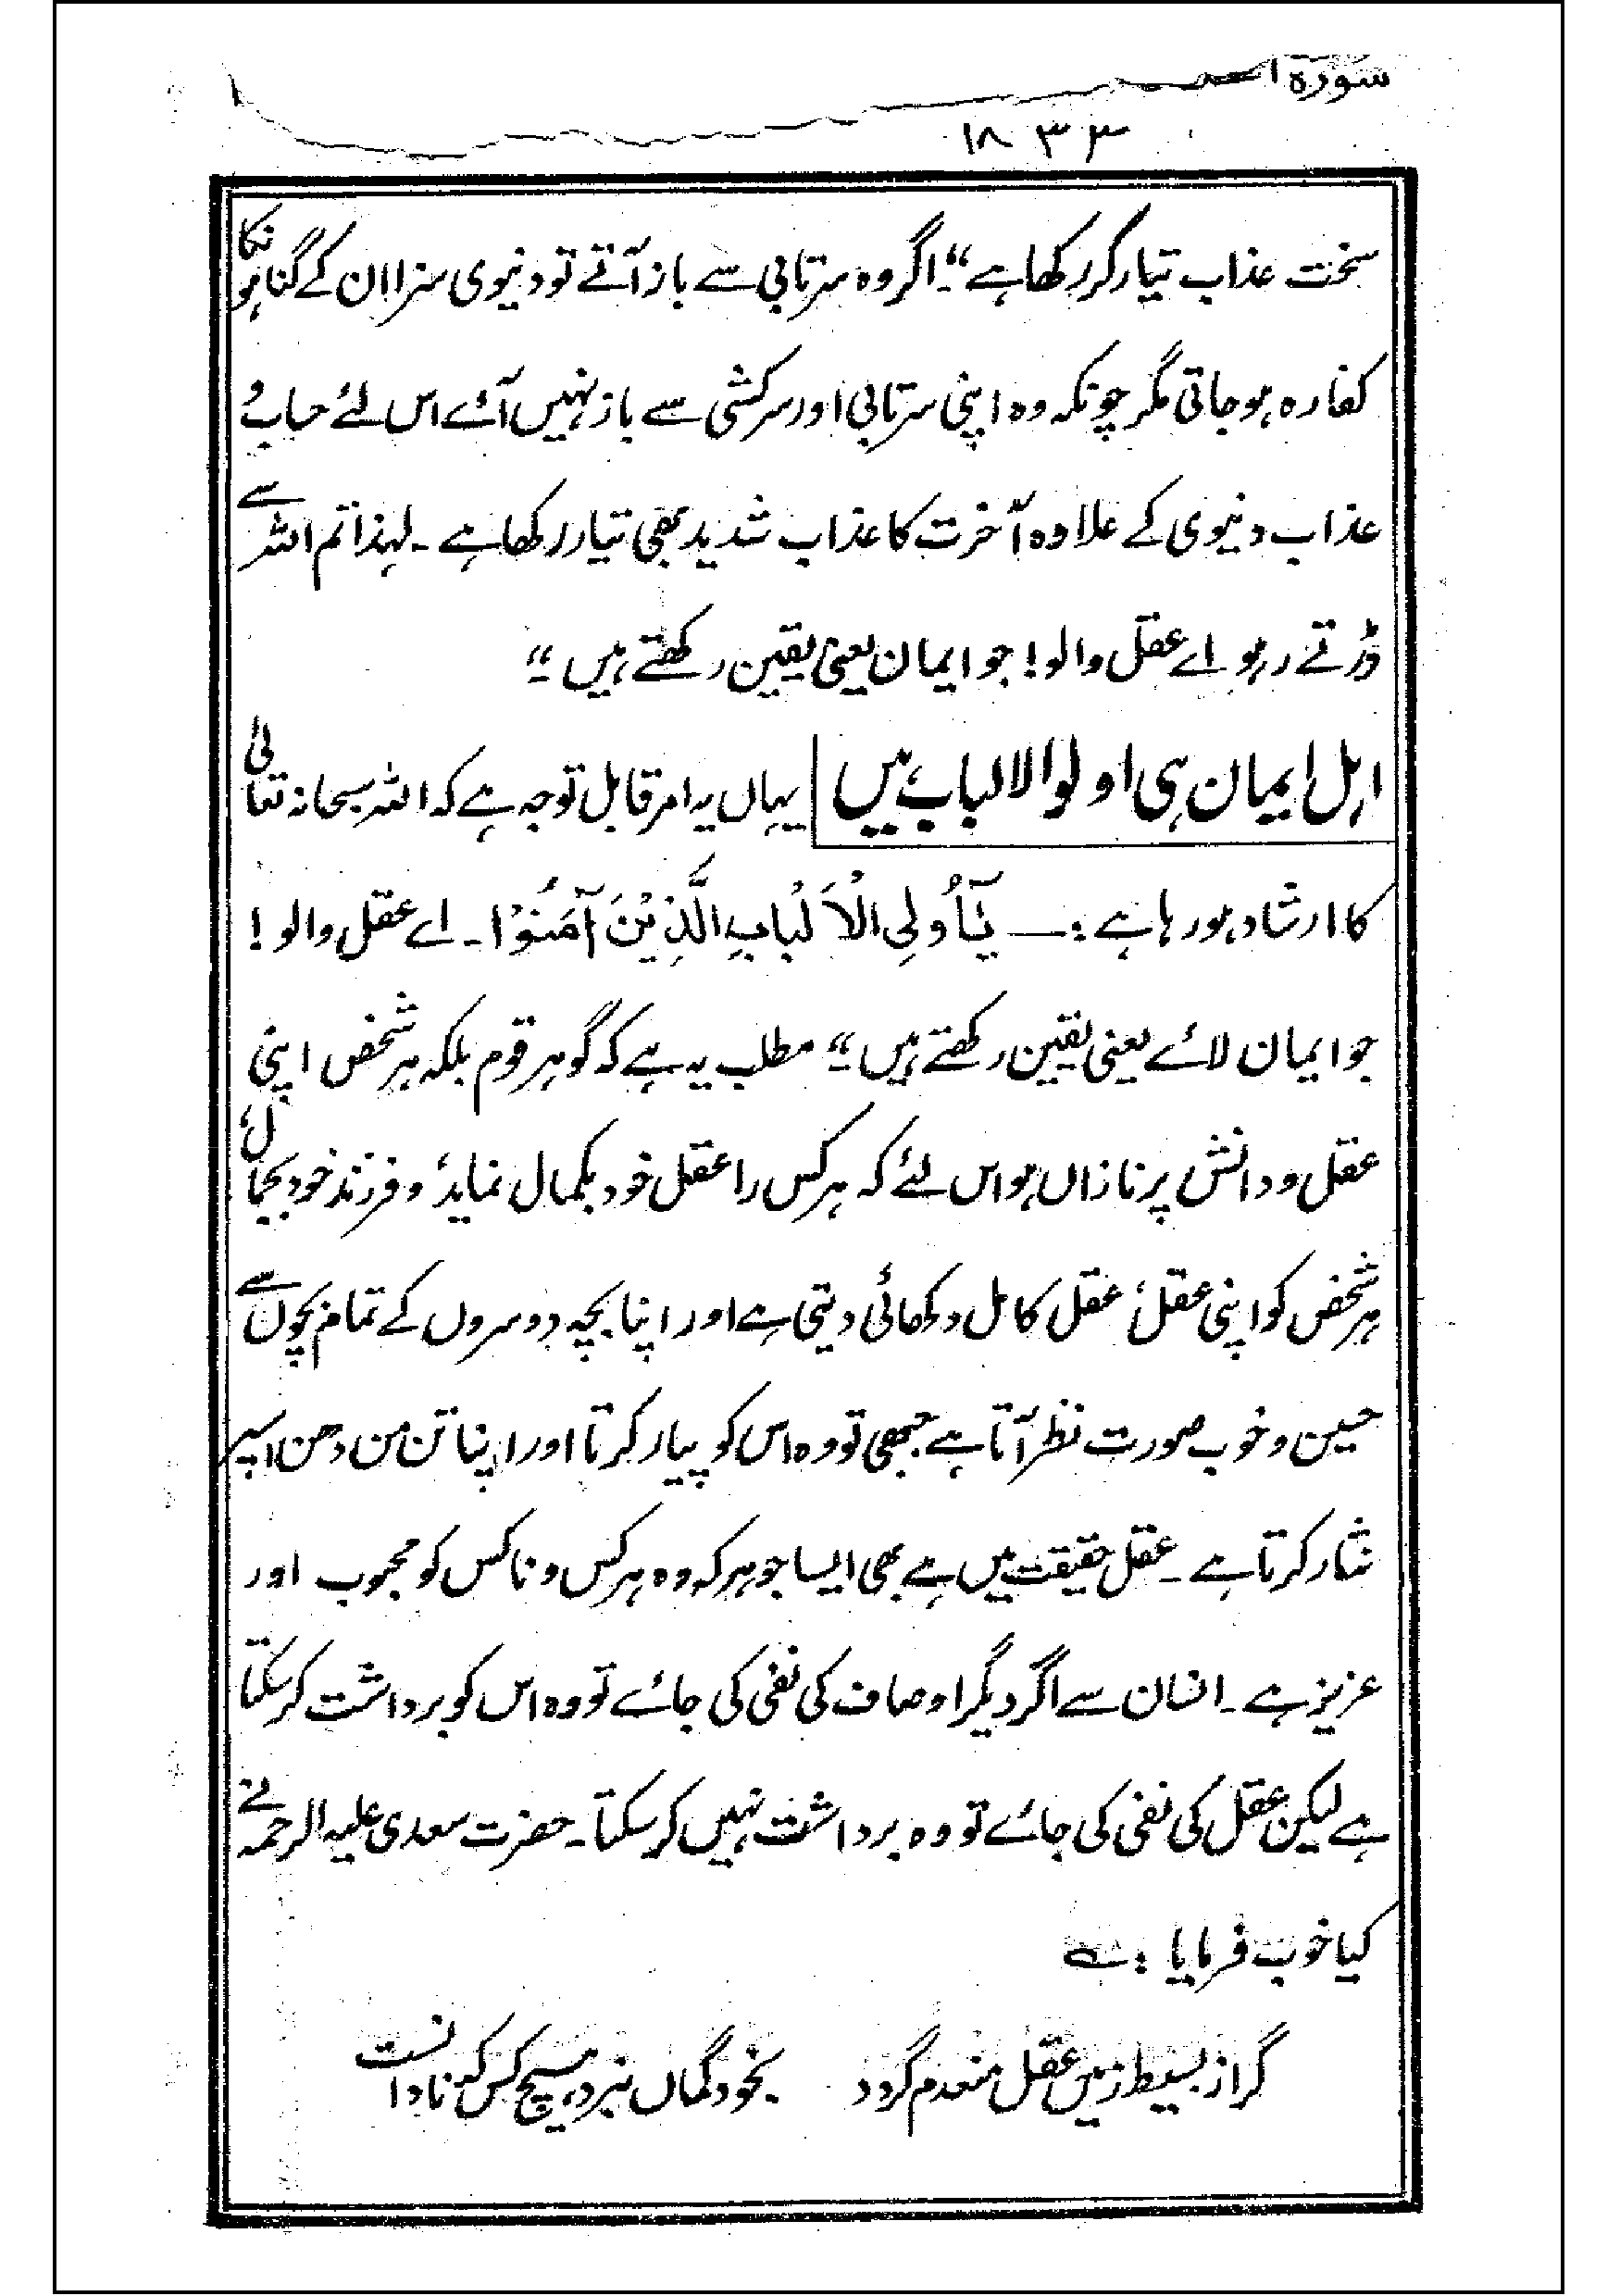 سورہ
۱۸۳۳
سخت عذاب تیار کر رکھا ہے“۔ اگر وہ سرتابی سے باز آتے تو دنیوی سزا ان کے گناہو نکا
کفارہ ہو جاتی مگر چونکہ وہ اپنی سرتابی اور سرکشی سے باز نہیں آئے اس لئے حساب و
عذاب دنیوی کے علاوہ آخرت کا عذاب شدید بھی تیار رکھا ہے ۔ لہذا تم اللہ سے
ڈرتے رہو اے عقل والو! جو ایمان یعنی یقین رکھتے ہیں“
اہل ایمان ہی اولوالالباب ہیں یہاں یہ امر قابل توجہ ہے کہ اللہ سبحانہ تعالیٰ
کا ارشاد ہو رہا ہے :ــــ يٰٓأُولِي الْأَلْبَابِ الَّذِيْنَ آمَنُوْا ۔ اے عقل والو !
جو ایمان لائے یعنی یقین رکھتے ہیں“ مطلب یہ ہے کہ گو ہر قوم بلکہ ہر شخص اپنی
عقل و دانش پر نازاں ہو اس لئے کہ ہر کس را عقل خود بکمال نماید و فرزند خود بجمال
ہر شخص کو اپنی عقل، عقل کامل دکھائی دیتی ہے اور اپنا بچہ دوسروں کے تمام بچوں سے
حسین و خوب صورت نظر آتا ہے جبھی تو وہ اس کو پیار کرتا اور اپنا تن من دھن اسپر
نثار کرتا ہے ۔ عقل حقیقت میں ہے بھی ایسا جوہر کہ وہ ہر کس و ناکس کو محبوب اور
عزیز ہے ۔ انسان سے اگر دیگر اوصاف کی نفی کی جائے تو وہ اس کو برداشت کر سکتا
ہے لیکن عقل کی نفی کی جائے تو وہ برداشت نہیں کر سکتا ۔ حضرت سعدی علیہ الرحمہ نے
کیا خوب فرمایا :ـــہ
گر از بسیط زمیں عقل منعدم گردد بخود گماں نبرد ہیچ کس کہ نادانست